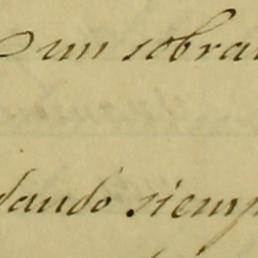 un sobra
dando siemp